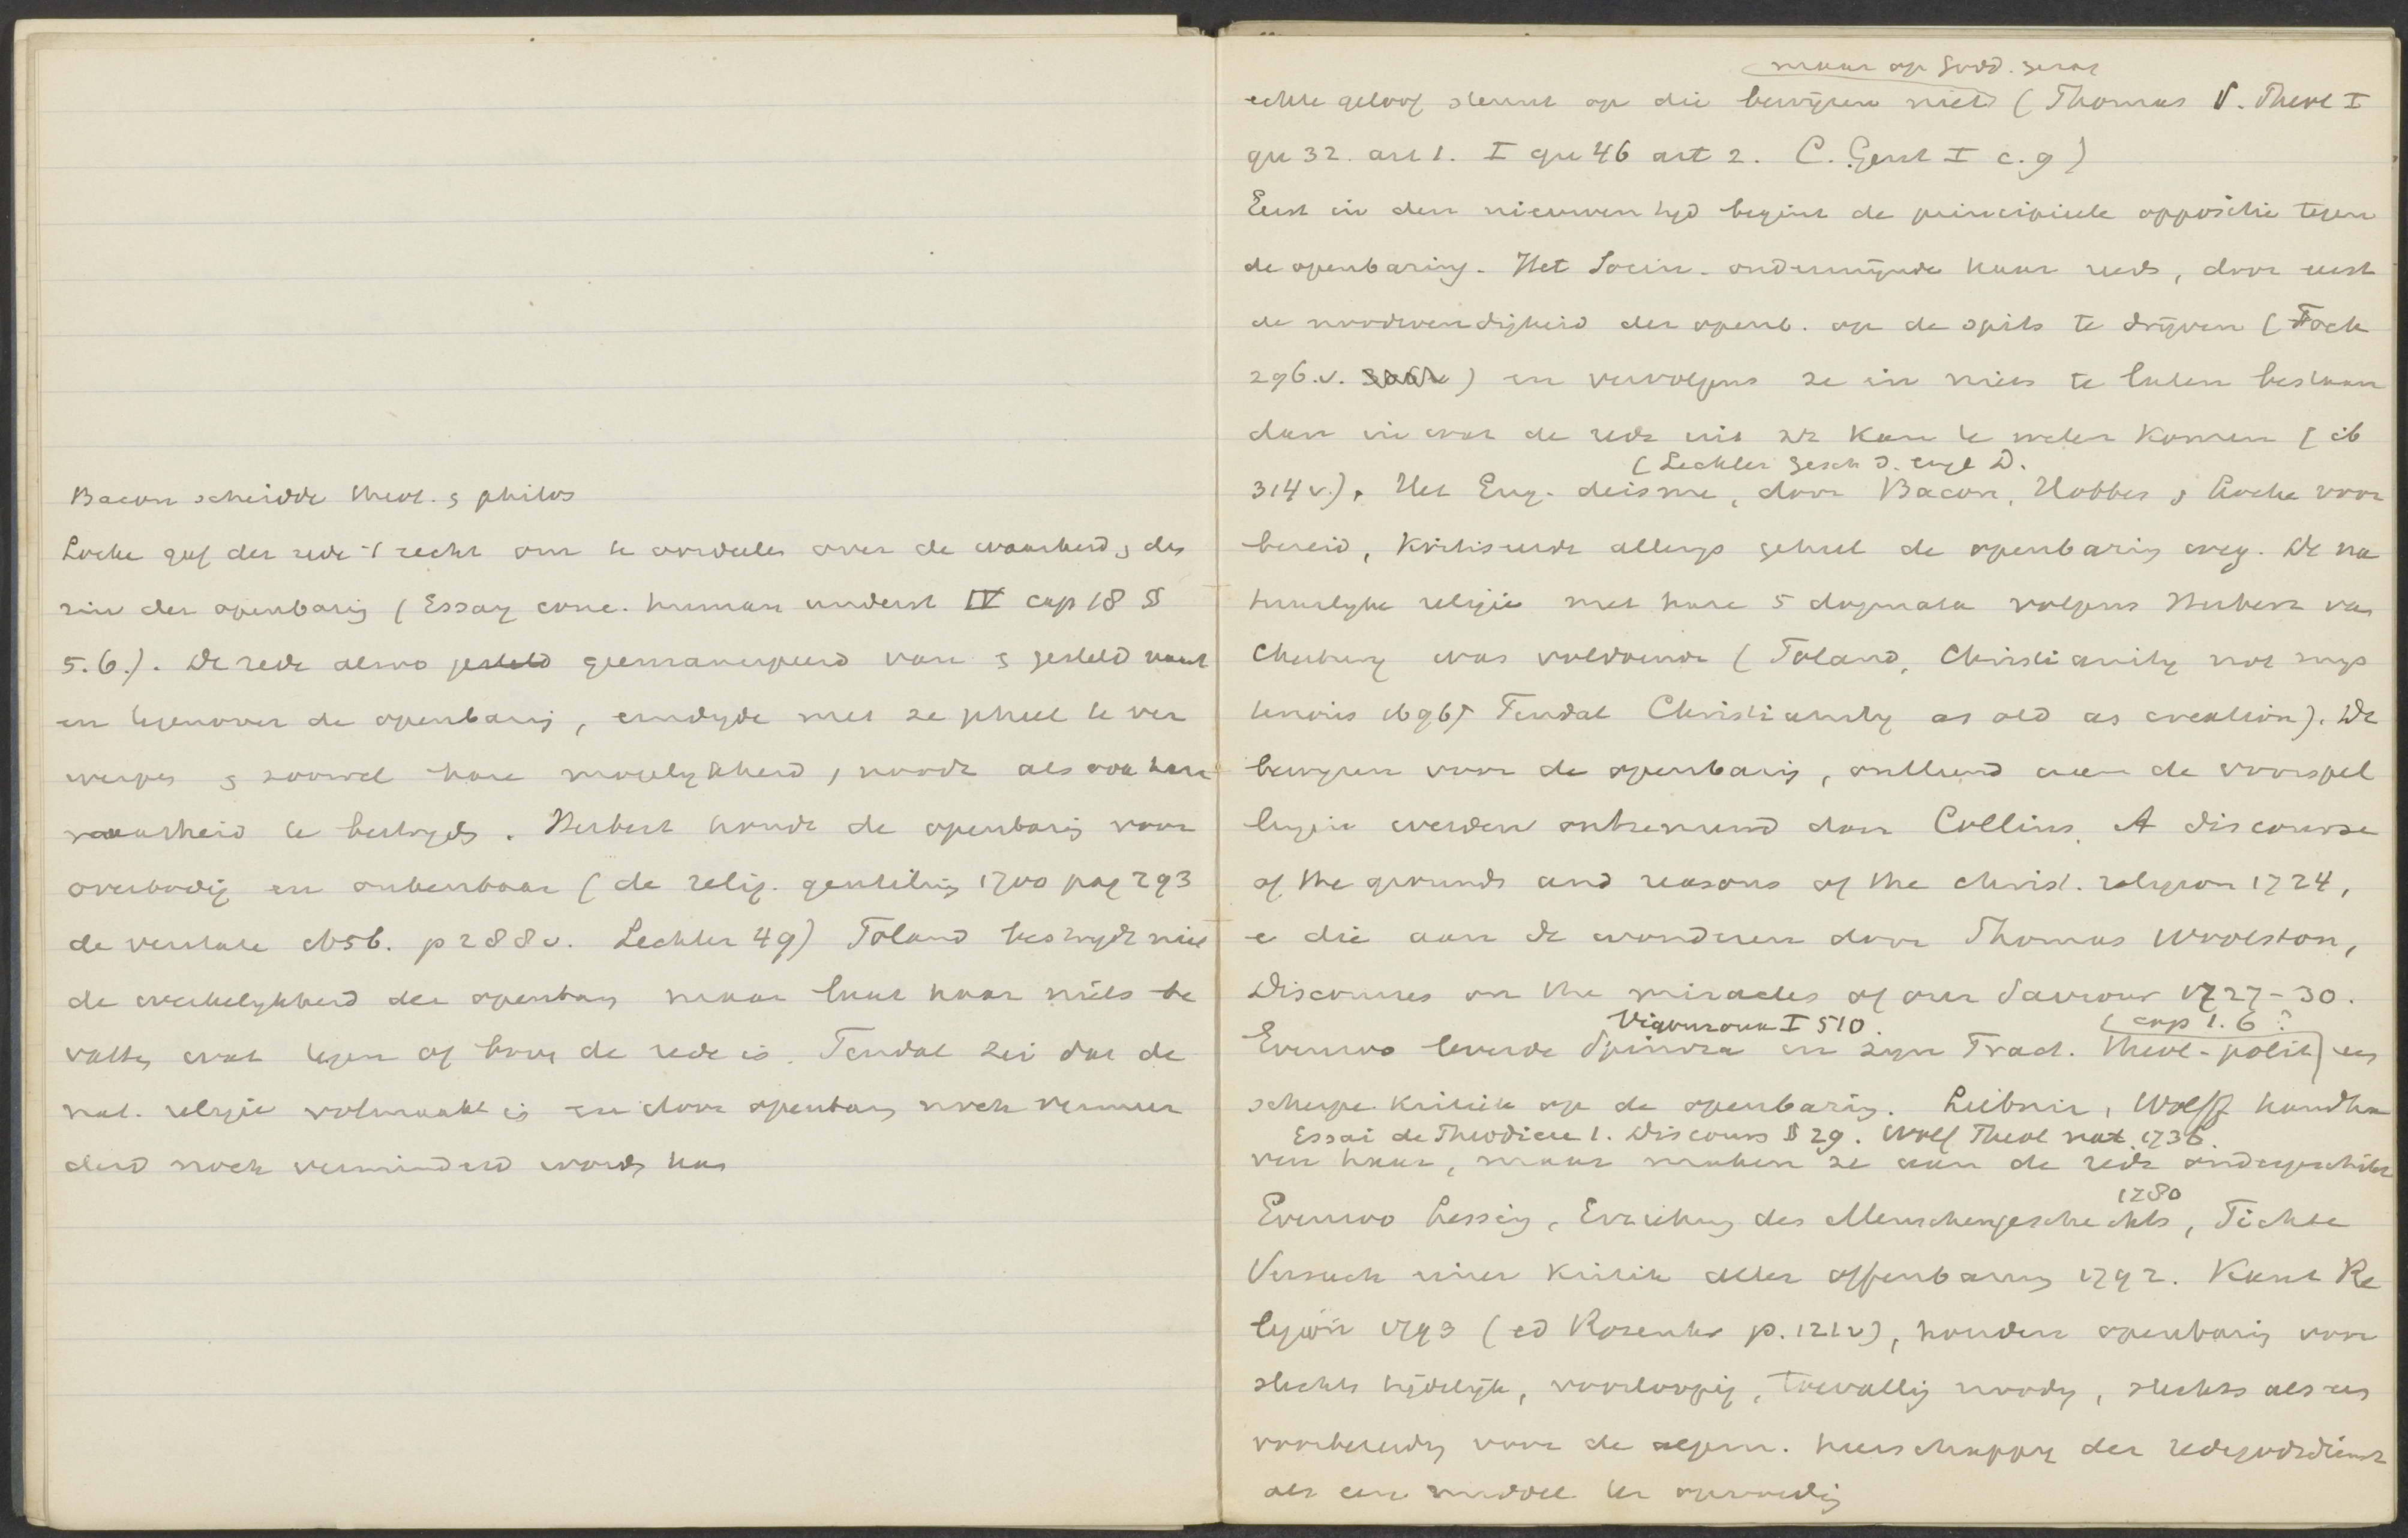 Bacon scheidde theol. & philos
Locke gaf der rede 't recht om te oordeelen over de waarheid & den
zin der openbaring (Essay conc. human underst IV cap 18 §
5. 6.). De rede alzoo geëmancipeerd van & gesteld naast
en tegenover de openbaring, eindigde met ze geheel te ver
werpen & zoowel hare mogelijkheid, noodz als ook hare
waarheid te bestrijden. Herbert houdt de openbaring voor
overbodig en onkenbaar (de relig. gentilium 1700 pag 293
de veritate 1656. p 288v. Lechler 49) Toland bestrijdt niet
de werkelijkheid der openbaring maar laat haar niets be
vatten wat tegen of boven de rede is. Tindal zei dat de
nat. religie volmaakt is en door openbaring noch vermeer
derd noch verminderd worden kan
maar op Godd. gezag
echte geloof steunt op die bewijzen niet (Thomas S. Theol I
qu 32. art 1. I qu 46 art 2. C. Gent I c. 9)
Eerst in den nieuweren tijd begint de principieele oppositie tegen
de openbaring. Het Socin. ondermijnde haar reeds, door eerst
de noodwendigheid der openb. op de spits te drijven (Fock
296.v.) en vervolgens ze in niets te laten bestaan
dan in wat de rede uit zich kan te weten komen (ib
(Lechler Gesch d. engl D.
314 v.). Het Eng. deisme, door Bacon, Hobbes & Locke voor
bereid, kritiseerde allengs geheel de openbaring weg. De na
tuurlijke religie met hare 5 dogmata volgens Herbert van
Cherbury was voldoende (Toland, Christianity not mys
terious 1696, Tindal Christianity as old as creation). De
bewijzen voor de openbaring, ontleend aan de voorspel
lingen werden ontzenuwd door Collins, A discourse
of the grounds and reasons of the christ. religion 1724,
e die aan de wonderen door Thomas Woolston,
Discourses on the miracles of our Saviour 1727-30.
Vigouroux I 510. (cap 1. 6?
Evenzoo leverde Spinoza in zijn Tract. theol-polit) een
scherpe kritiek op de openbaring. Leibniz, Wolff handha
Essai de Theodicee 1. Discours § 29. Wolf Theol nat 1736.
ven haar, maar maken ze aan de rede ondergeschikt
1780
Evenzoo Lessing, Erziehung des Menschengeschlechts, Fichte
Versuch einer Kritik aller Offenbarung 1792. Kant Re
ligion 1793 (ed Rosenkr p. 121v), houden openbaring voor
slechts tijdelijk, voorloopig, toevallig noodig, slechts als een
voorbereiding voor de algem. heerschappij der redegodsdienst
als een middel ter opvoeding